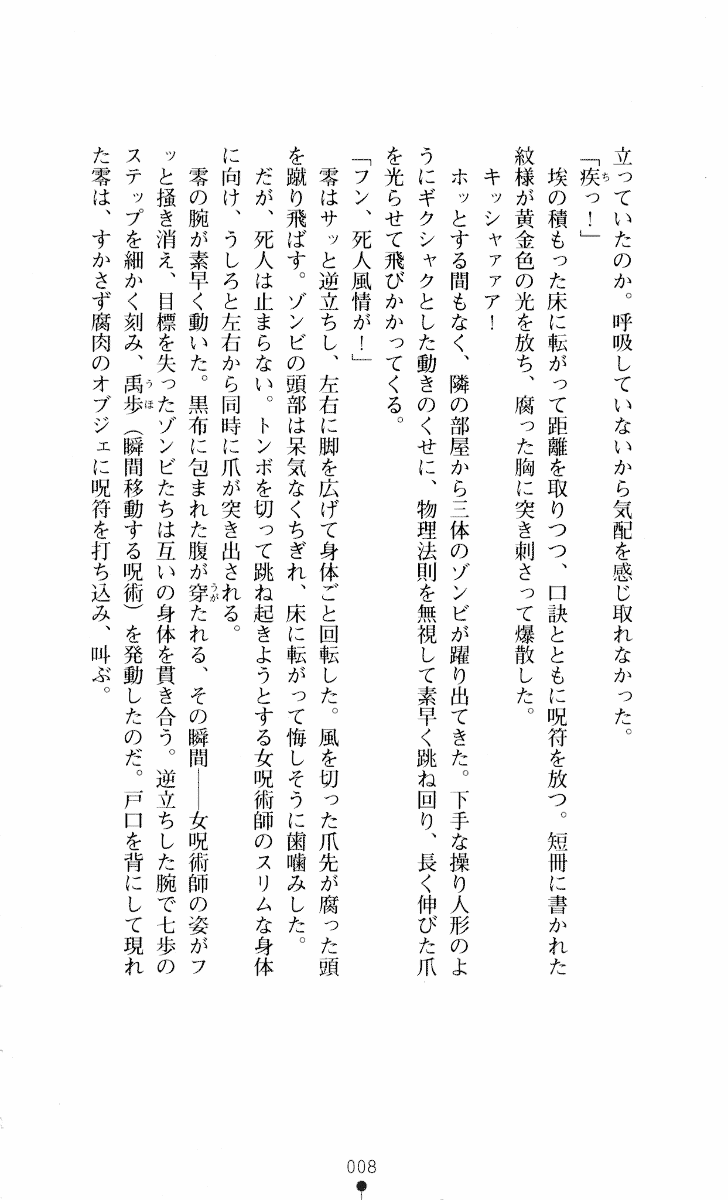 立っていたのか。呼吸していないから気配を感じ取れなかった。
「疾っ！」
　埃の積もった床に転がって距離を取りつつ、口訣とともに呪符を放つ。短冊に書かれた
紋様が黄金色の光を放ち、腐った胸に突き刺さって爆散した。
　キッシャァァア！
　ホッとする間もなく、隣の部屋から三体のゾンビが躍り出てきた。下手な操り人形のよ
うにギクシャクとした動きのくせに、物理法則を無視して素早く跳ね回り、長く伸びた爪
を光らせて飛びかかってくる。
「フン、死人風情が！」
　零はサッと逆立ちし、左右に脚を広げて身体ごと回転した。風を切った爪先が腐った頭
を蹴り飛ばす。ゾンビの頭部は呆気なくちぎれ、床に転がって悔しそうに歯噛みした。
　だが、死人は止まらない。トンボを切って跳ね起きようとする女呪術師のスリムな身体
に向け、うしろと左右から同時に爪が突き出される。
　零の腕が素早く動いた。黒布に包まれた腹が穿たれる、その瞬間――女呪術師の姿がフ
ッと掻き消え、目標を失ったゾンビたちは互いの身体を貫き合う。逆立ちした腕で七歩の
ステップを細かく刻み、禹歩（瞬間移動する呪術）を発動したのだ。戸口を背にして現れ
た零は、すかさず腐肉のオブジェに呪符を打ち込み、叫ぶ。
008